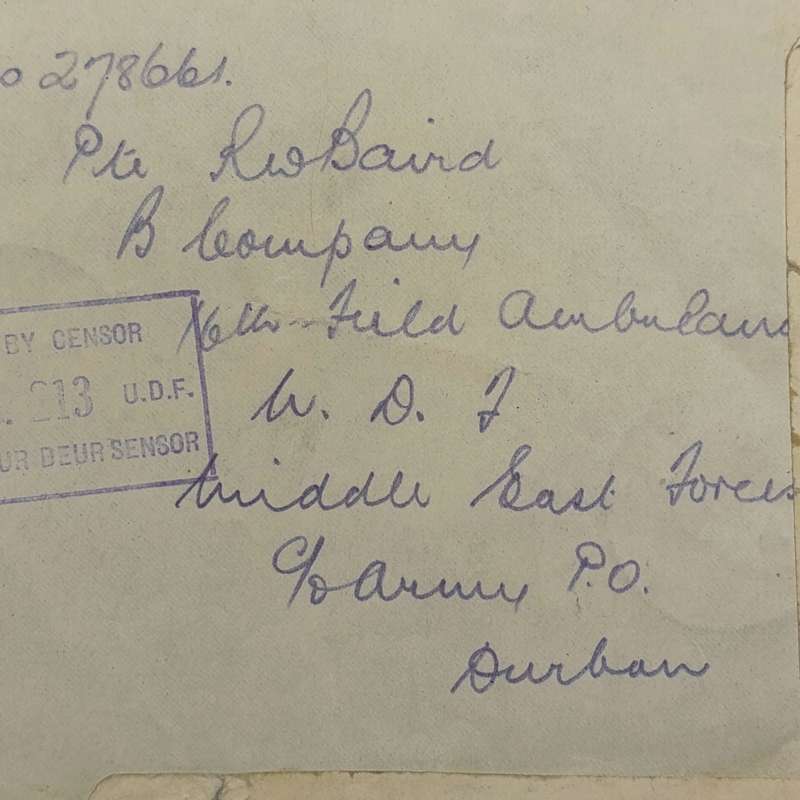 o 278661.
Pte RW Baird
B Company
16th Field Ambulan
U. D. F
Middle East Forces
c/o Army P.O.
Durban
BY CENSOR
. 213 U.D.F.
UR DEUR SENSOR